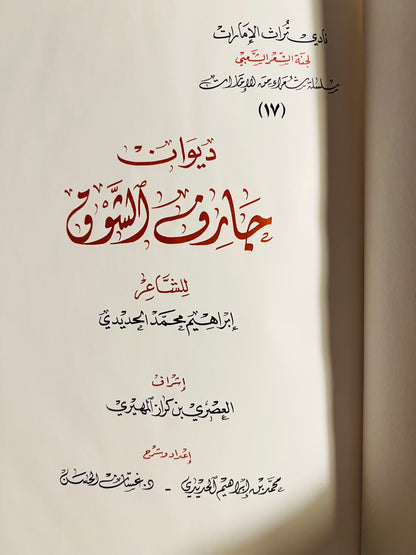 نادي تراث الإمارات
لجنة الشعر الشعبي
سلسلة شعراء من الإمارات
(١٧)
ديوان
جارف الشَّوق
للشَّاعر
إبراهيم محمد الحديدي
إشراف
العصري بن كراز المهيري
إعداد وشرح
محمد بن إبراهيم الحديدي - د. غسان الحسن